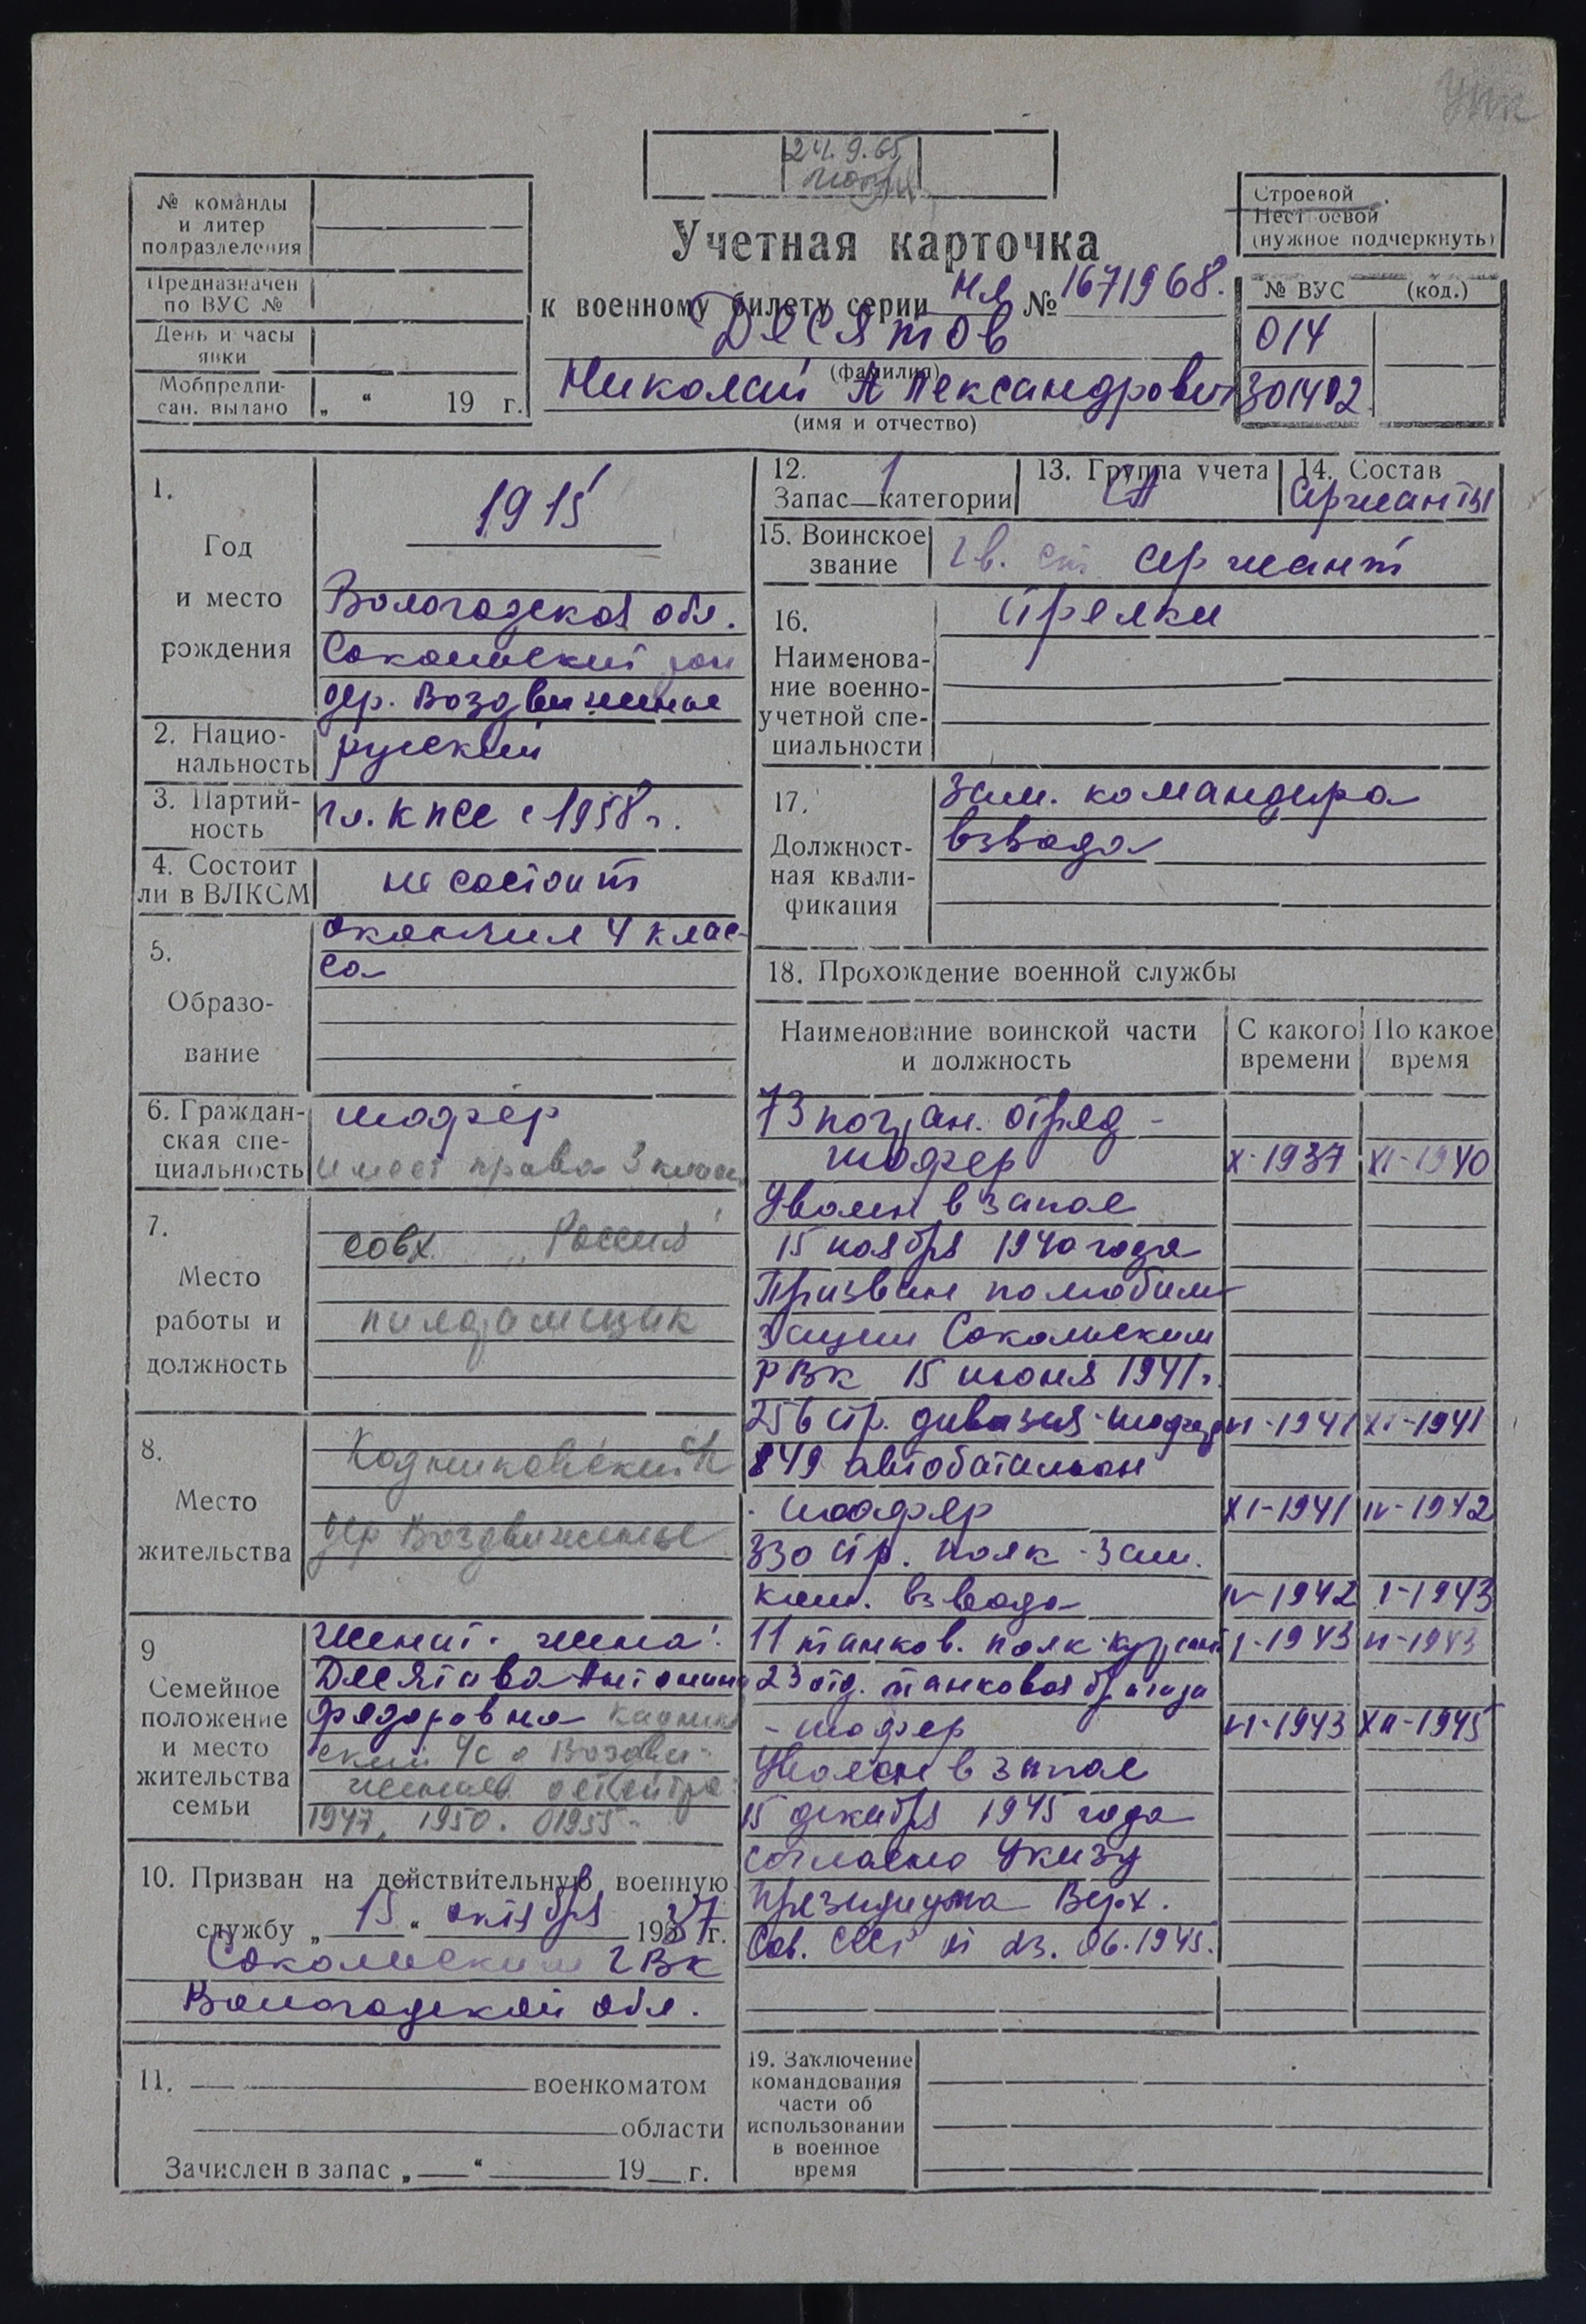 упк
24.9.65
№ команды
и литер
подразделения
Предназначен
по ВУС №
День и часы
явки
Мобпредпи-
сан. выдано „ “ 19 г.
Учетная карточка
к военному билету серии НЛ № 1671968.
Десятов
(фамилия)
Николай Александрович
(имя и отчество)
Строевой
Нестроевой
(нужное подчеркнуть)
№ ВУС (код.)
014
301402
1.
Год
и место
рождения
1915
Вологодская обл.
Сокольский рон
дер. Воздвиженье
2. Нацио-
нальность
русский
3. Партий-
ность
чл. КПСС с 1958 г.
4. Состоит
ли в ВЛКСМ
не состоит
5.
Образо-
вание
окончил 4 клас-
са
6. Граждан-
ская спе-
циальность
шофер
имеет права 3 класса
7.
Место
работы и
должность
совх. „Россия"
пилорамщик
8.
Место
жительства
Кадниковский с/с
дер Воздвиженье
9
Семейное
положение
и место
жительства
семьи
Женат. жена:
Десятова Антонина
Федоровна Кадников
ский с/с д Воздви-
женье
1947, 1950. 1955-
10. Призван на действительную военную
службу „15“ октября 1937г.
Сокольским ГВК
Вологодской обл.
11. военкоматом
области
Зачислен в запас „ “ 19 г.
12. 1
Запас—категории
13. Группа учета
РА
14. Состав
Сержанты
15. Воинское
звание
гв. ст. сержант
16.
Наименова-
ние военно-
учетной спе-
циальности
стрелки
17.
Должност-
ная квали-
фикация
зам. командира
взвода
18. Прохождение военной службы
Наименование воинской части
и должность
С какого
времени
По какое
время
73 погран. отряд -
шофер X-1937 XI-1940
Уволен в запас
15 ноября 1940 года
Призван по мобили
зации Сокольским
РВК 15 июня 1941 г.
256 стр. дивизия - шофер VI-1941 XI-1941
849 автобатальон
- шофер XI-1941 IV-1942
330 стр. полк - зам.
ком. взвода IV-1942 I-1943
11 танков. полк - курсант I-1943 VI-1943
23 отд. танковая бригада
- шофер VI-1943 XII-1945
Уволен в запас
15 декабря 1945 года
согласно Указу
Президиума Верх.
Сов. СССР от 23.06.1945.
19. Заключение
командования
части об
использовании
в военное
время